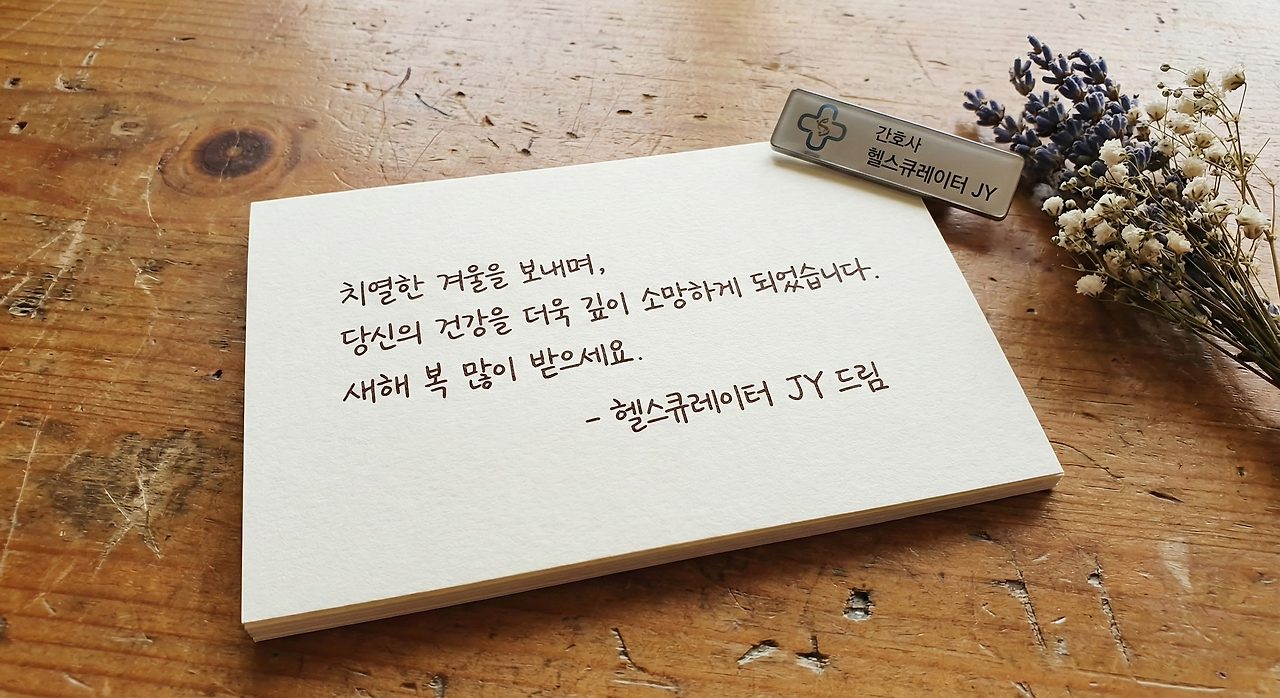 간호사
헬스큐레이터 JY
치열한 겨울을 보내며,
당신의 건강을 더욱 깊이 소망하게 되었습니다.
새해 복 많이 받으세요.
- 헬스큐레이터 JY 드림